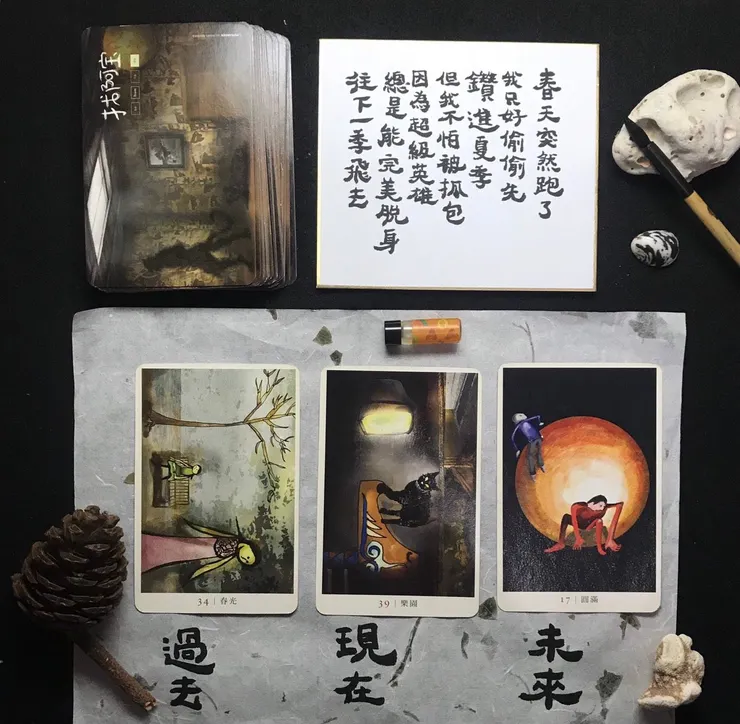 找阿宝
春天突然跑了
我只好偷偷先
鑽進夏季
但我不怕被抓包
因為超級英雄
總是能完美脫身
往下一季飛去
34 | 春光
39 | 樂園
17 | 圓滿
過去
現在
未來